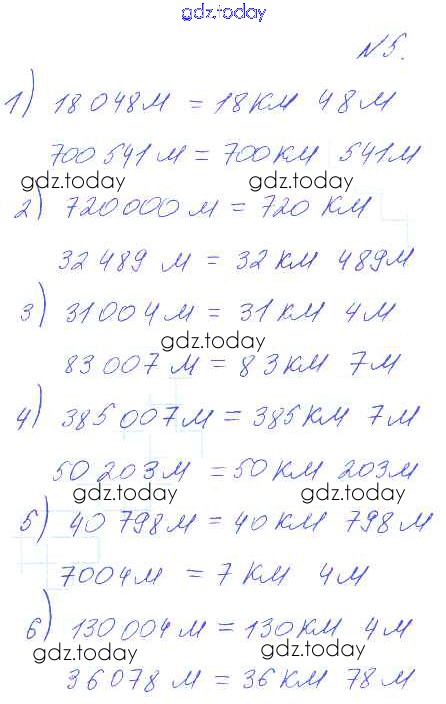 gdz.today
№5.
1) 18 048 м = 18 км 48 м
700 541 м = 700 км 541 м
gdz.today gdz.today
2) 720 000 м = 720 км
32 489 м = 32 км 489 м
3) 31 004 м = 31 км 4 м
gdz.today
83 007 м = 83 км 7 м
4) 385 007 м = 385 км 7 м
50 203 м = 50 км 203 м
gdz.today gdz.today
5) 40 798 м = 40 км 798 м
7004 м = 7 км 4 м
6) 130 004 м = 130 км 4 м
gdz.today gdz.today
36 078 м = 36 км 78 м